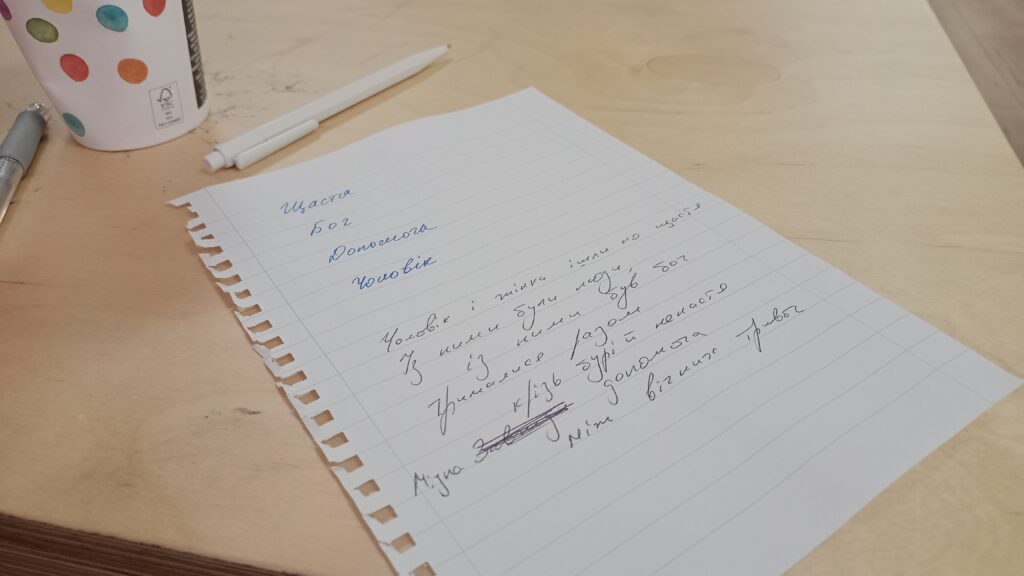 Щастя
Бог
Допомога
Чоловік
Чоловік і жінка ішли по щастя
Із ними були люди,
із ними був бог
Трималися разом
крізь бурі й ненастя
Міцна допомога
між вічних тривог
FSC